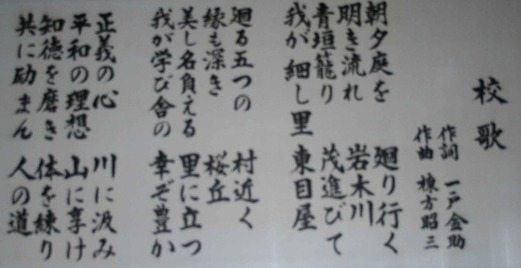 校歌
作詞 一戸金助
作曲 棟方昭三
朝夕庭を 廻り行く
明き流れ 岩木川
青垣籠り 茂進びて
我が細し里 東目屋
廻る五つの 村近く
縁も深き 桜丘
美し名負える 里に立つ
我が学び舎の 幸ぞ豊か
正義の心 川に汲み
平和の理想 山に享け
知徳を磨き 体を練り
共に励まん 人の道